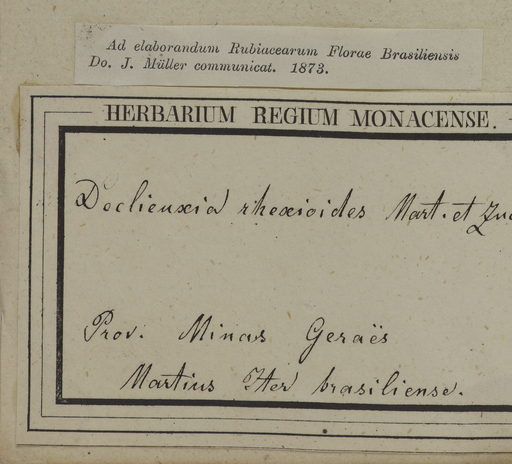 Ad elaborandum Rubiacearum Florae Brasiliensis
Do. J. Müller communicat. 1873.
HERBARIUM REGIUM MONACENSE.
Declieuxia rhexioides Mart. et Zuc
Prov. Minas Geraës
Martius Iter brasiliense.